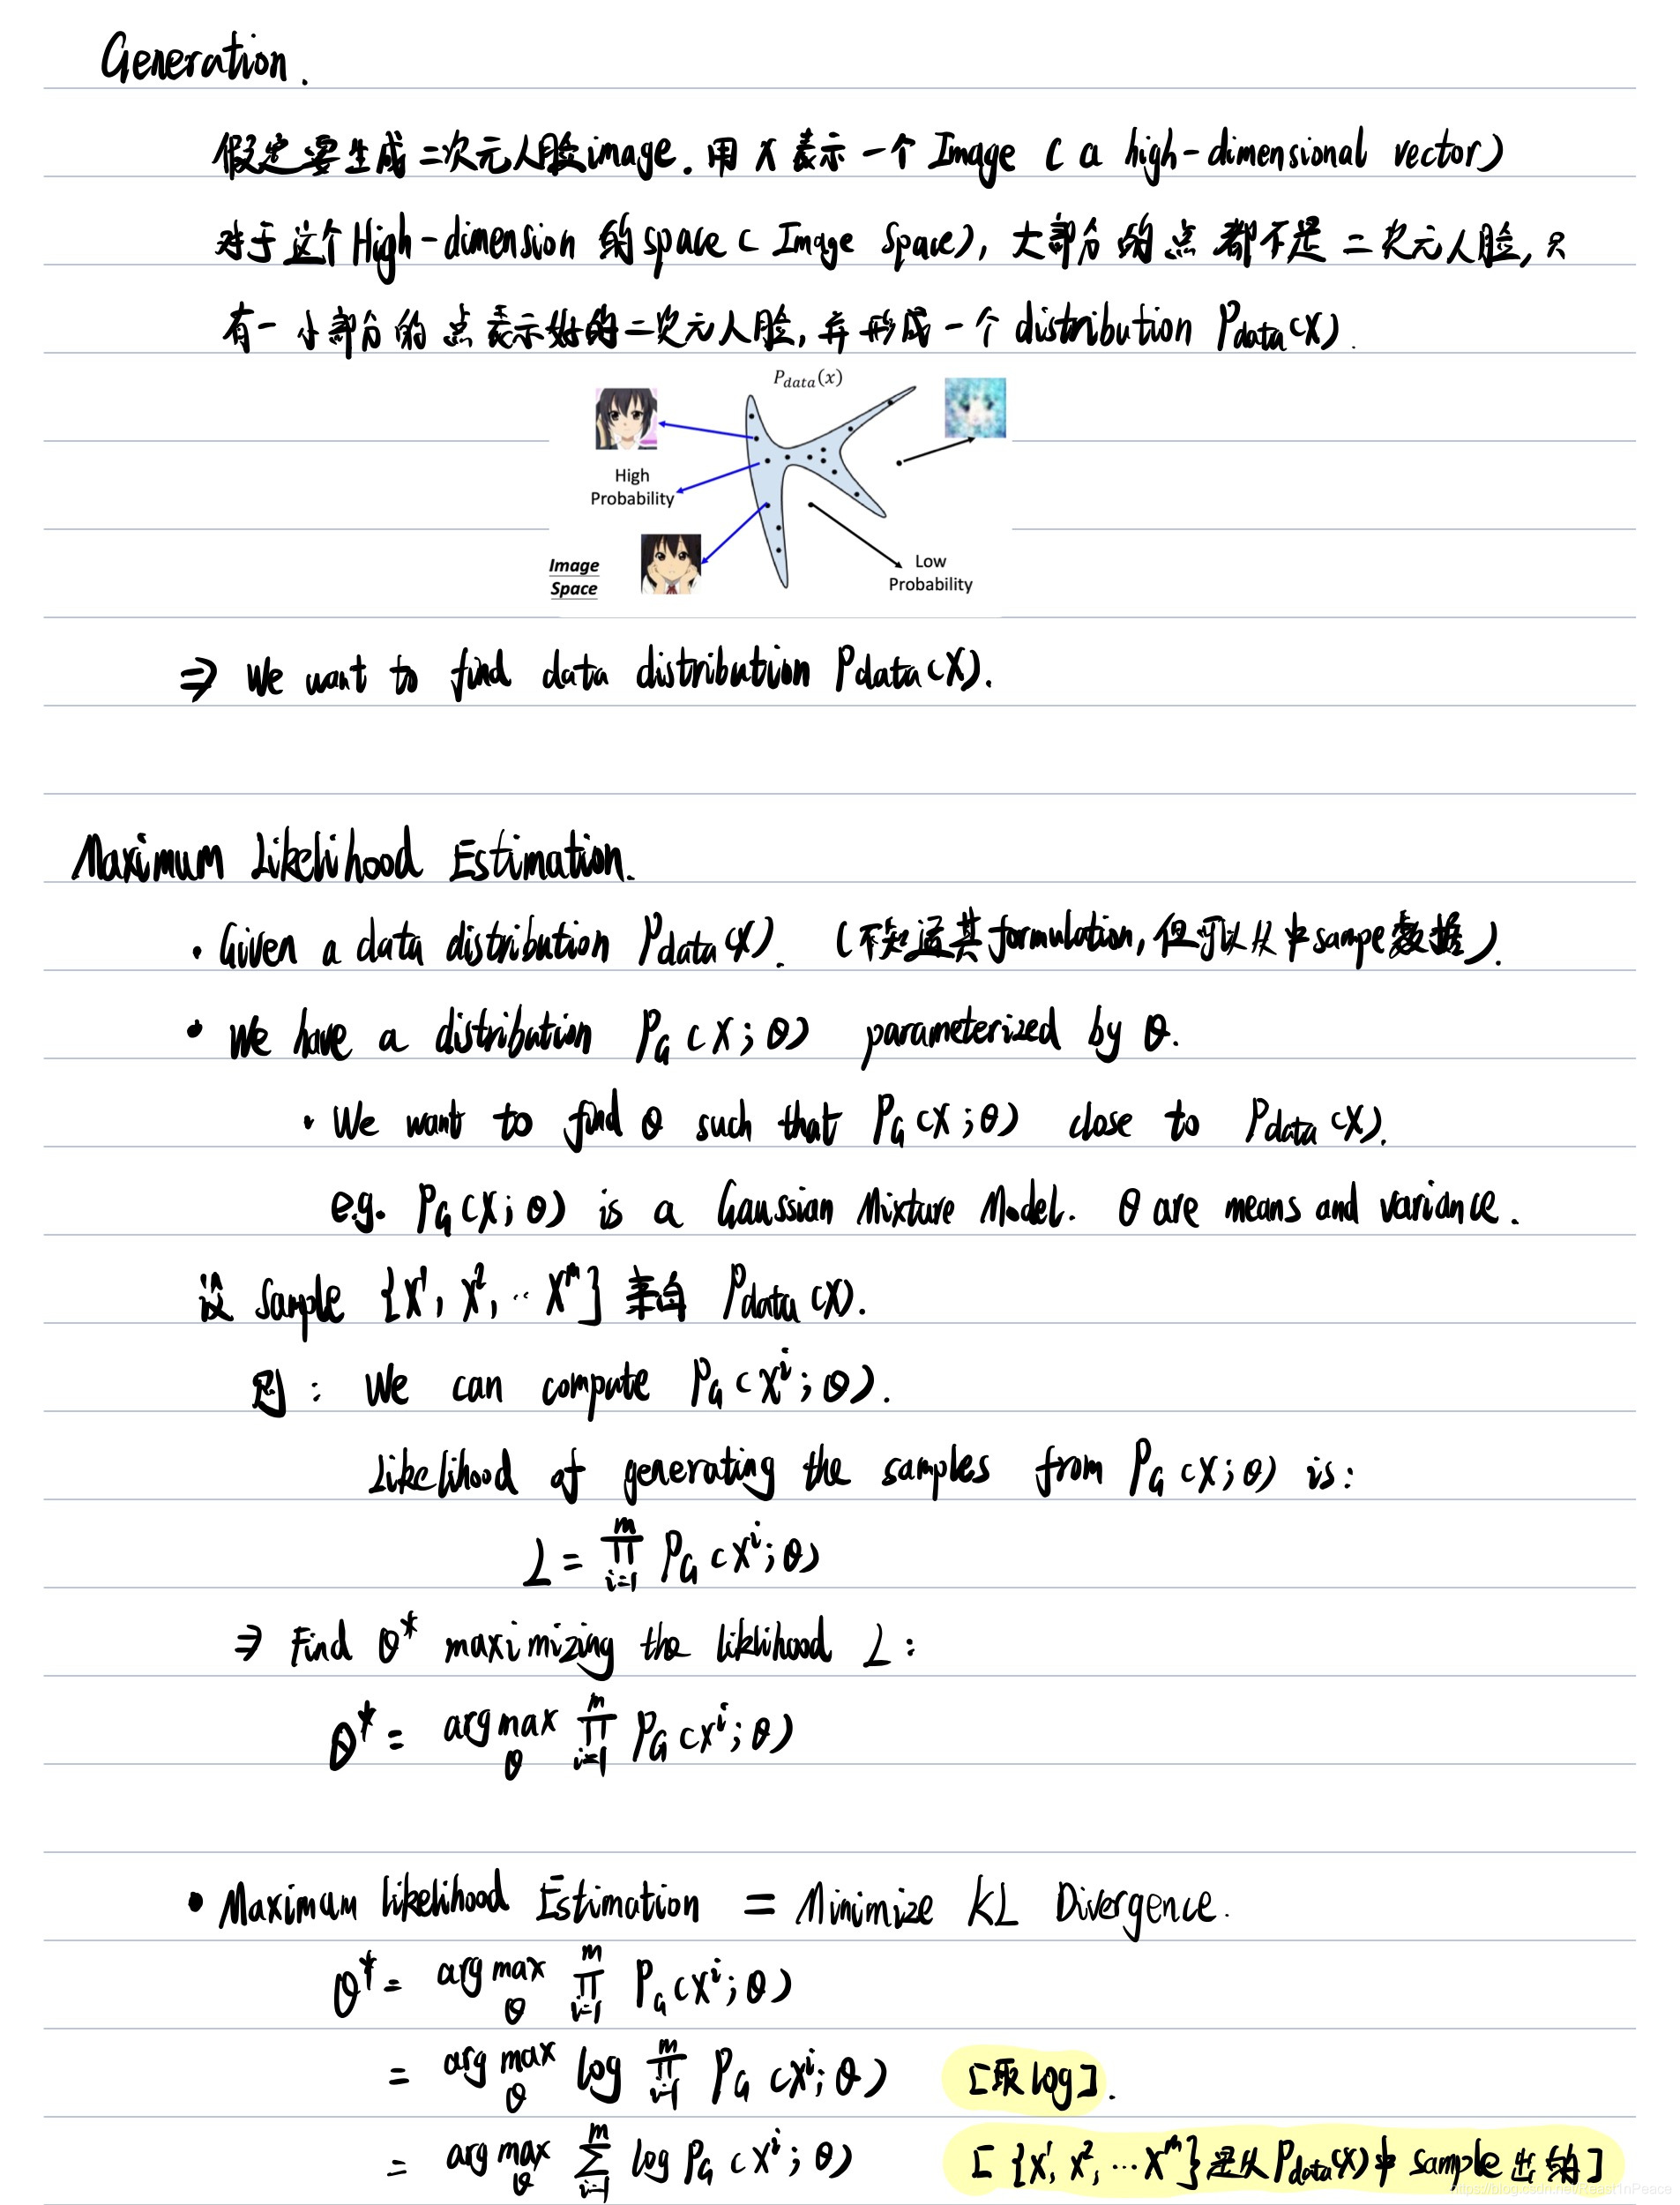 Generation.
假定要生成二次元人脸image. 用 X 表示一个 Image ( a high-dimensional vector)
对于这个High-dimension 的space ( Image Space), 大部分的点都不是二次元人脸, 只
有一小部分的点表示好的二次元人脸, 并形成一个distribution Pdata(X).
Pdata(x)
High
Probability
Image
Space
Low
Probability
⇒ We want to find data distribution Pdata(X).
Maximum Likelihood Estimation.
· Given a data distribution Pdata(X). (不知道其formulation, 但可以从中sampe数据).
• We have a distribution PG(X;θ) parameterized by θ.
· We want to find θ such that PG(X;θ) close to Pdata(X).
e.g. PG(X;θ) is a Gaussian Mixture Model. θ are means and variance.
设 Sample {X¹, X², ·· Xᵐ} 来自 Pdata(X).
则: We can compute PG(Xⁱ;θ).
Likelihood of generating the samples from PG(X;θ) is:
L = ∏_{i=1}^{m} PG(Xⁱ;θ)
⇒ Find θ* maximizing the liklihood L:
θ* = arg max_θ ∏_{i=1}^{m} PG(Xⁱ;θ)
• Maximum Likelihood Estimation = Minimize KL Divergence.
θ* = arg max_θ ∏_{i=1}^{m} PG(Xⁱ;θ)
= arg max_θ log ∏_{i=1}^{m} PG(Xⁱ;θ) [取log].
= arg max_θ ∑_{i=1}^{m} log PG(Xⁱ;θ) [ {X¹, X², ··· Xᵐ}是从Pdata(X)中 sample 出的]
https://blog.csdn.net/Reast1nPeace